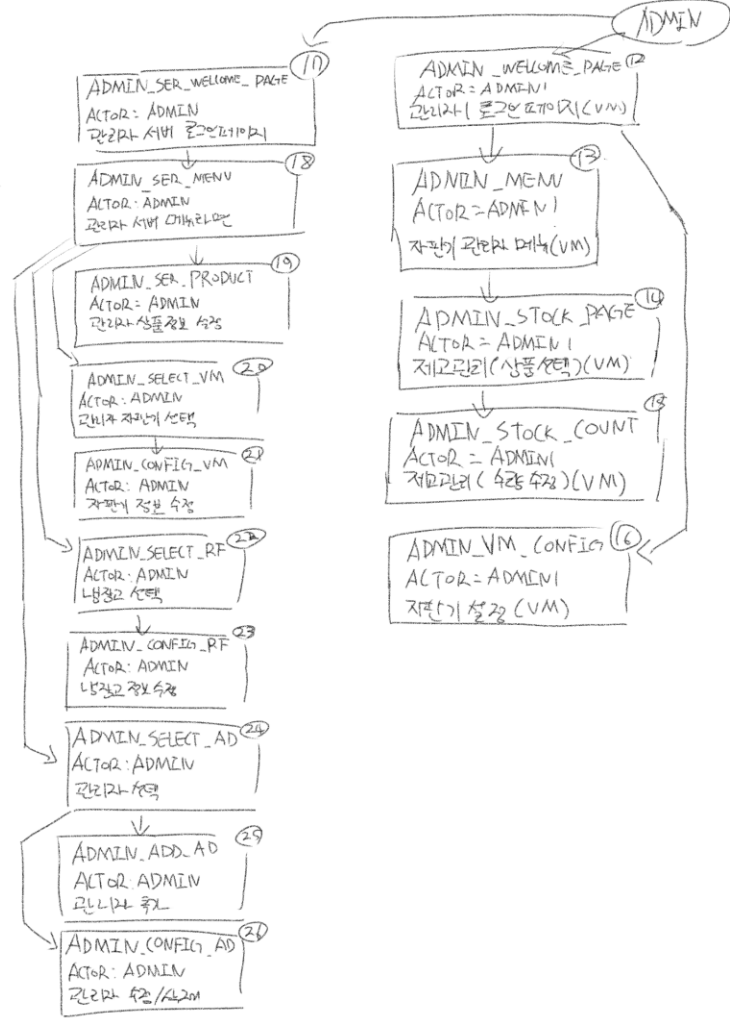 ADMIN
17
ADMIN_SER_WELCOME_PAGE
ACTOR: ADMIN
관리자 서버 로그인페이지
18
ADMIN_SER_MENU
ACTOR: ADMIN
관리자 서버 메뉴화면
19
ADMIN_SER_PRODUCT
ACTOR: ADMIN
관리자 상품정보 수정
20
ADMIN_SELECT_VM
ACTOR: ADMIN
관리자 자판기 선택
21
ADMIN_CONFIG_VM
ACTOR: ADMIN
자판기 정보 수정
22
ADMIN_SELECT_RF
ACTOR: ADMIN
냉장고 선택
23
ADMIN_CONFIG_RF
ACTOR: ADMIN
냉장고 정보수정
24
ADMIN_SELECT_AD
ACTOR: ADMIN
관리자 선택
25
ADMIN_ADD_AD
ACTOR: ADMIN
관리자 추가
26
ADMIN_CONFIG_AD
ACTOR: ADMIN
관리자 수정/삭제
12
ADMIN_WELCOME_PAGE
ACTOR = ADMIN1
관리자1 로그인페이지(VM)
13
ADMIN_MENU
ACTOR = ADMIN1
자판기 관리자 메뉴(VM)
14
ADMIN_STOCK_PAGE
ACTOR = ADMIN1
제고관리(상품선택)(VM)
15
ADMIN_STOCK_COUNT
ACTOR = ADMIN1
제고관리(수량수정)(VM)
16
ADMIN_VM_CONFIG
ACTOR = ADMIN1
자판기 설정(VM)